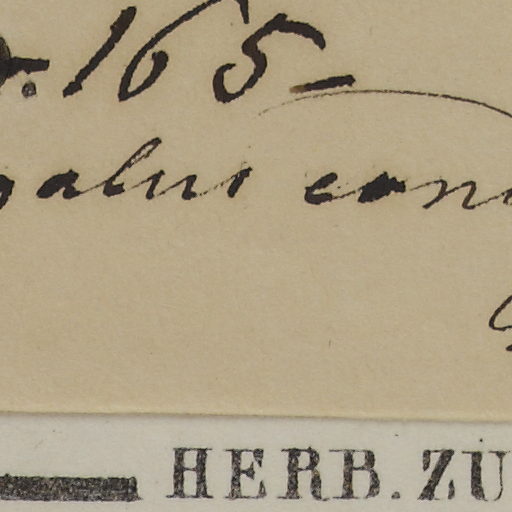 . 165-
galus con
HERB. ZU